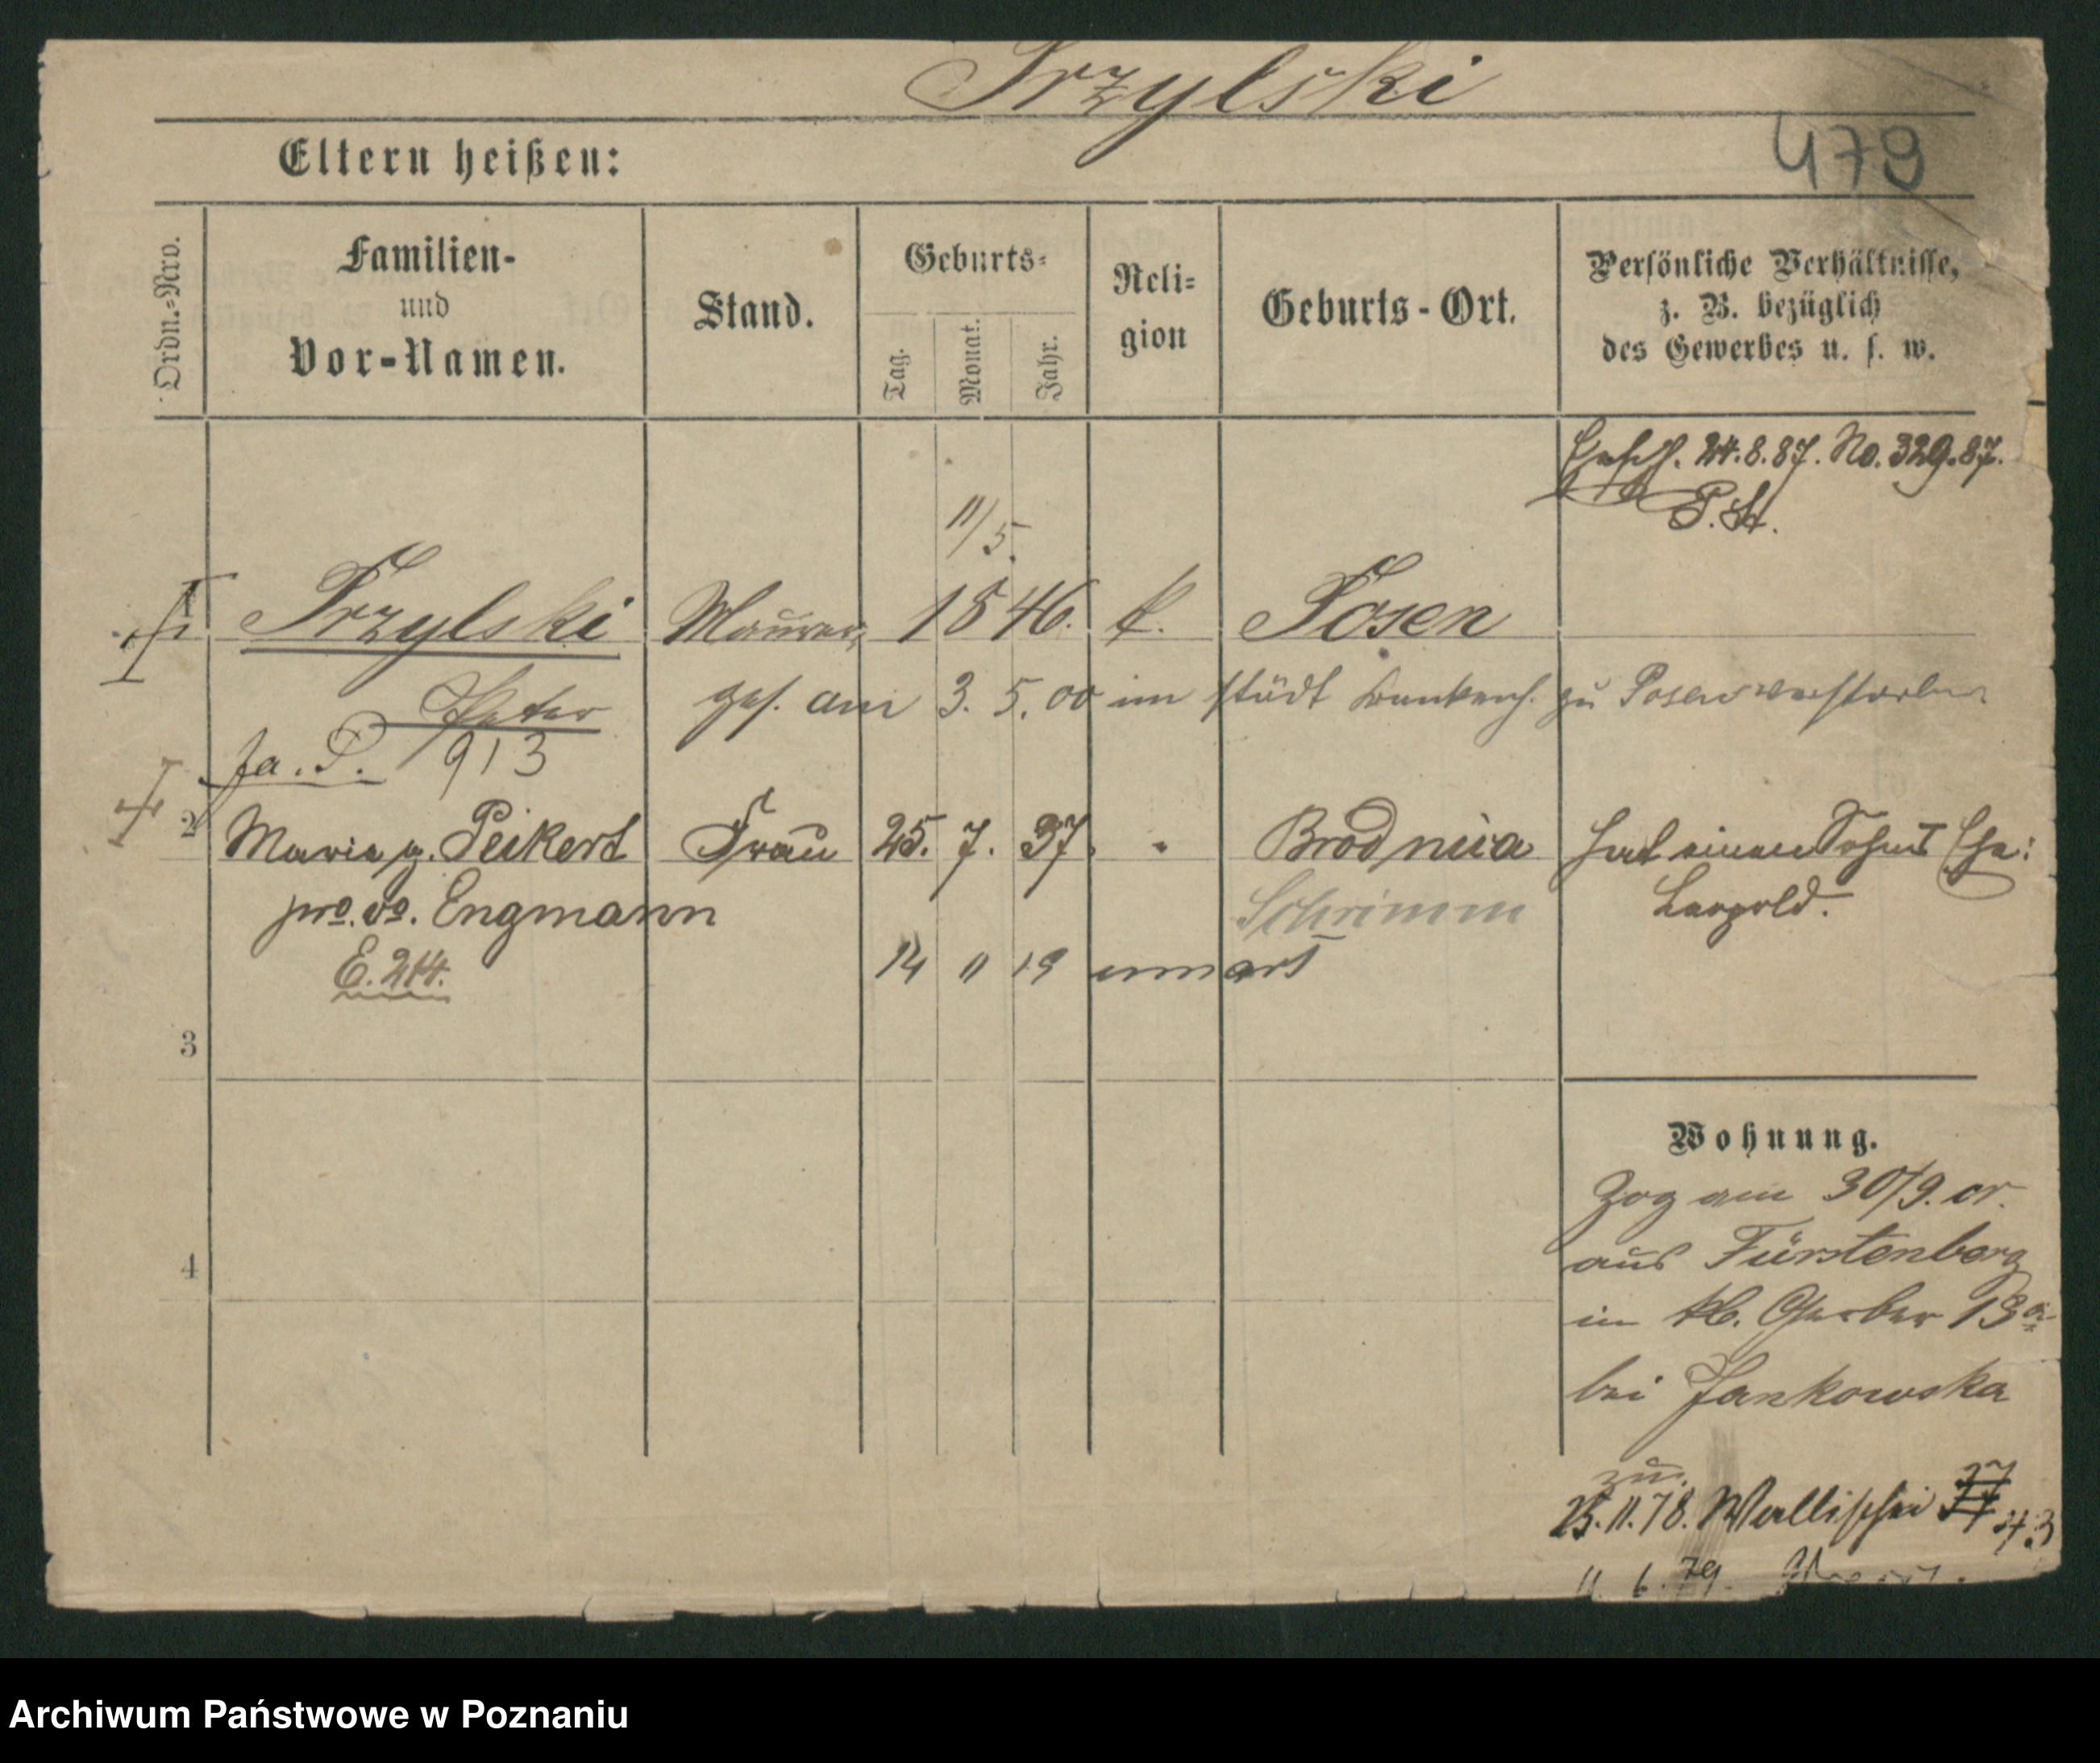 Trzylski
Eltern heißen:
479
Ordn.-Nro.
Familien-
und
Vor-Namen.
Stand.
Geburts-
Tag.
Monat.
Jahr.
Reli-
gion
Geburts-Ort.
Persönliche Verhältnisse,
z. B. bezüglich
des Gewerbes u. s. w.
24.8.87. No. 329.87.
11/5.
1 Trzylski Maurer 1846. k. Posen
Peter
am 3. 5. 00 im städt Krankenh. zu Posen verstorben
fa. P. 913
2 Maria g. Peikert Frau 25. 7. 37 " Brodnica hat einen Sohn I Ehe:
pro. vo. Engmann Schrimm Leopold.
E. 214. 14 11 19
3
4
Wohnung.
Zog am 30/9. cr.
aus Fürstenberg
in kl. Gerber 13a
bei Jankowska
zur.
25.11.78. Wallischei 43
11. 6. 79.
Archiwum Państwowe w Poznaniu